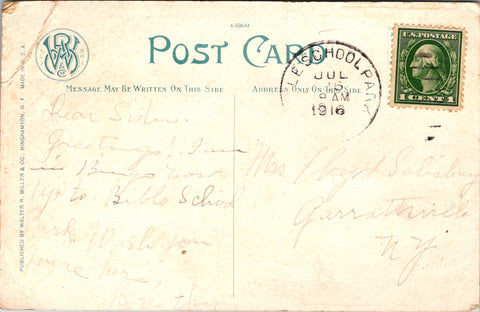 A-59644
POST CARD
MESSAGE MAY BE WRITTEN ON THIS SIDE
ADDRESS ONLY ON THIS SIDE
PUBLISHED BY WALTER R. MILLER & CO., BINGHAMTON, N.Y. MADE IN U.S.A.
LE SCHOOL PARK
JUL
15
9 AM
1916
U.S. POSTAGE
1 CENT 1
Dear Sister
Greetings! I am
in Bing now
up to Bible School
Park. Wish you
were here.
Brother
Mrs Floyd Salisbury
Garrattsville
N.Y.